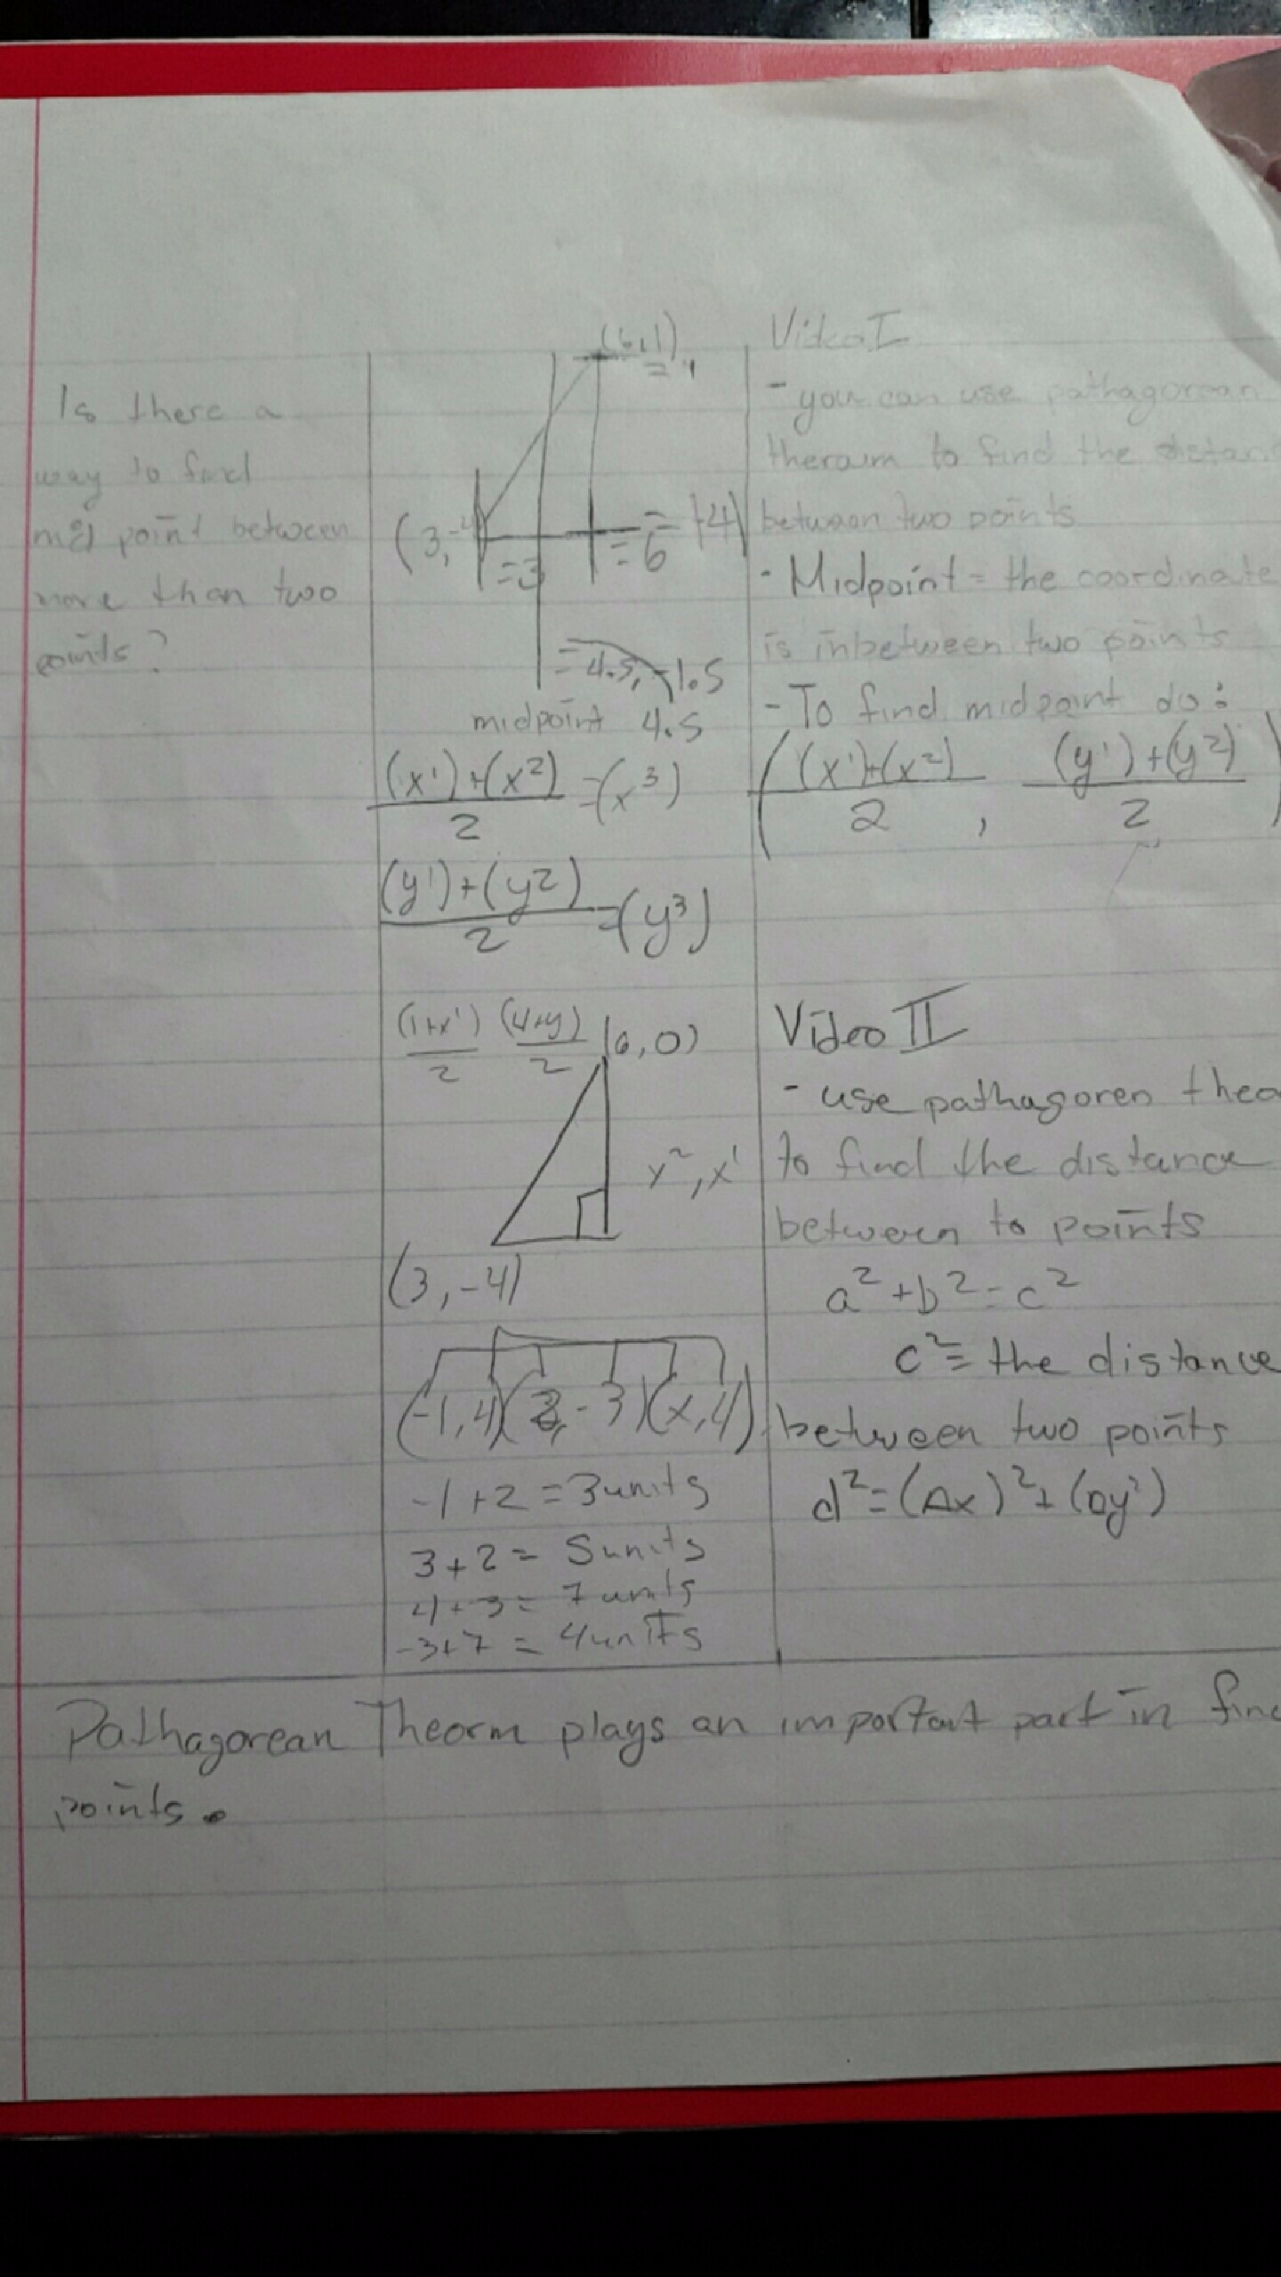 Is there a
way to find
mid point between
more than two
points?
(6,1)
(3,-4
=3
=6
=4.5, -1.5
midpoint 4.5
(x¹)+(x²) =(x³)
2
(y¹)+(y2) =(y³)
2
(1+x¹) (4+y) (6,0)
2 2
y²,x¹
(3,-4)
(-1,4)(2,-3)(x,4)
-1+2=3units
3+2= 5units
4+3= 7units
-3+7 = 4units
Video I
- you can use pathagorean
theraum to find the distan
between two points
- Midpoint = the coordinate
is inbetween two points
- To find midpoint do:
((x¹)+(x²) , (y¹)+(y²))
2 2
Video II
- use pathagoren theo
to find the distance
between to points
a²+b²=c²
c²= the distance
between two points
d²=(Δx)²+(Δy²)
Pathagorean Theorm plays an important part in find
points.